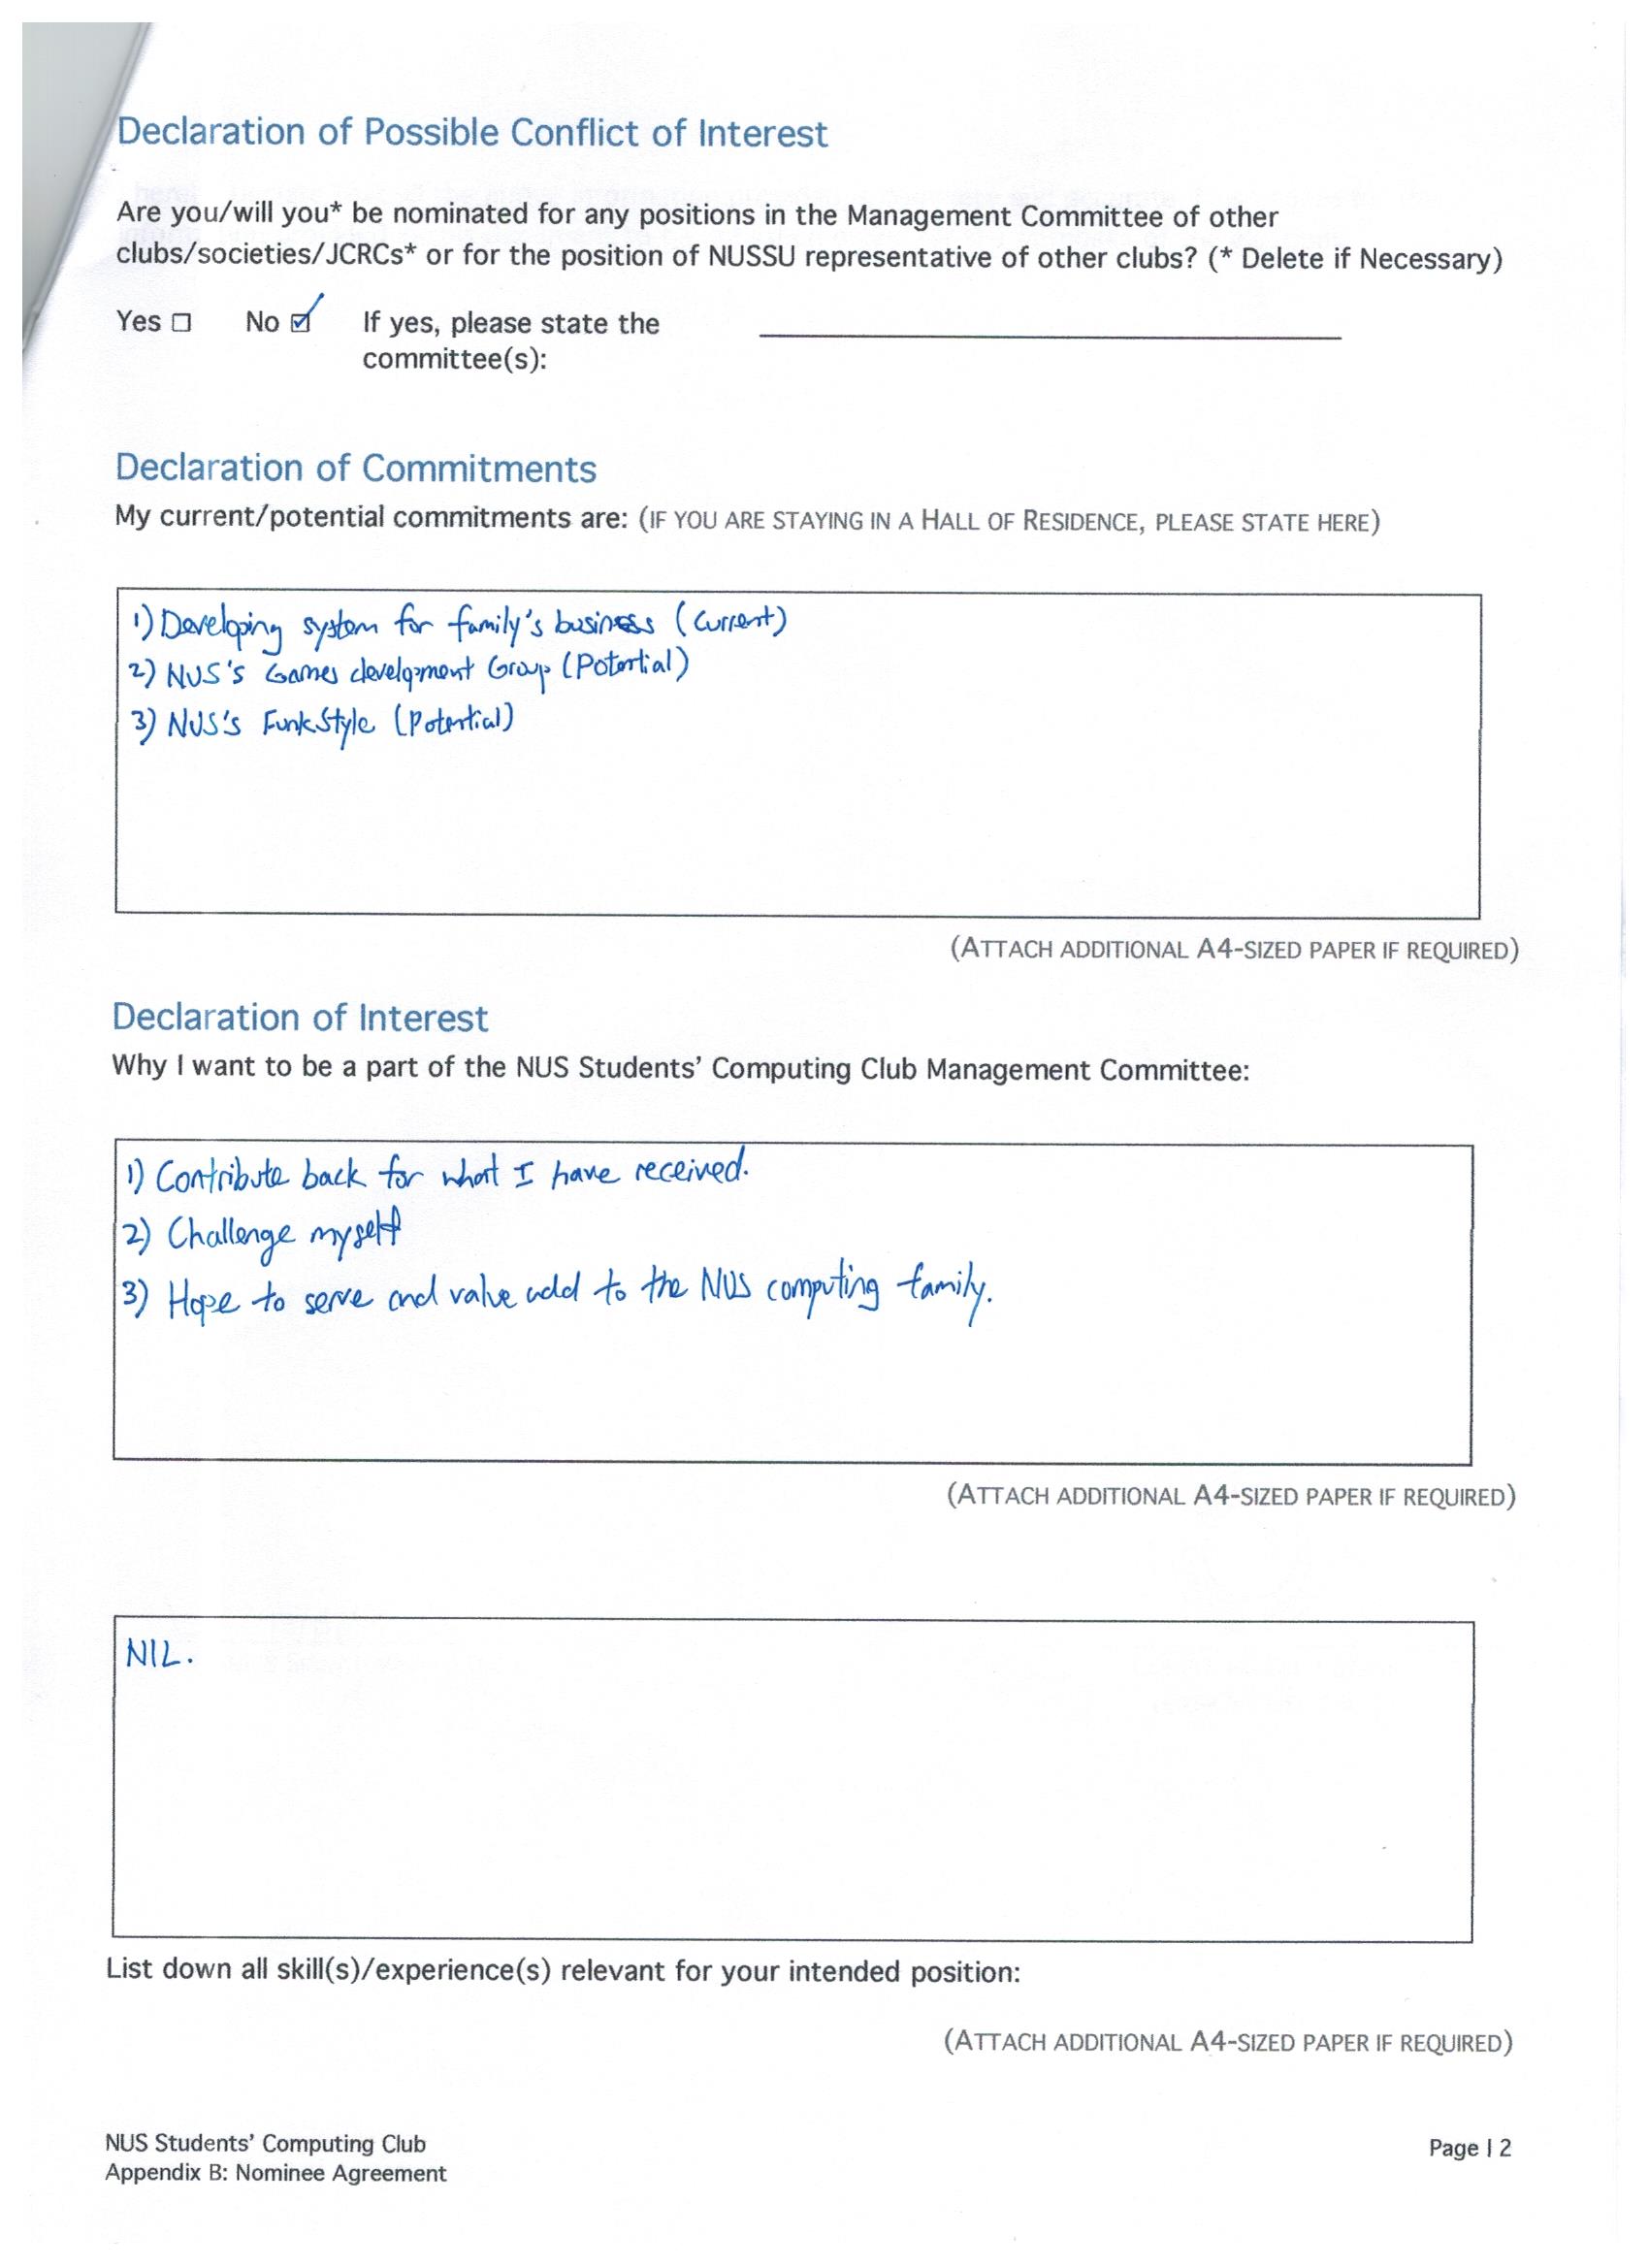 Declaration of Possible Conflict of Interest
Are you/will you* be nominated for any positions in the Management Committee of other
clubs/societies/JCRCs* or for the position of NUSSU representative of other clubs? (* Delete if Necessary)
Yes ☐ No ☑ If yes, please state the
committee(s):
Declaration of Commitments
My current/potential commitments are: (IF YOU ARE STAYING IN A HALL OF RESIDENCE, PLEASE STATE HERE)
1) Developing system for family's business (Current)
2) NUS's Games development Group (Potential)
3) NUS's FunkStyle (Potential)
(ATTACH ADDITIONAL A4-SIZED PAPER IF REQUIRED)
Declaration of Interest
Why I want to be a part of the NUS Students' Computing Club Management Committee:
1) Contribute back for what I have received.
2) Challenge myself
3) Hope to serve and value add to the NUS computing family.
(ATTACH ADDITIONAL A4-SIZED PAPER IF REQUIRED)
NIL.
List down all skill(s)/experience(s) relevant for your intended position:
(ATTACH ADDITIONAL A4-SIZED PAPER IF REQUIRED)
NUS Students' Computing Club
Appendix B: Nominee Agreement
Page | 2